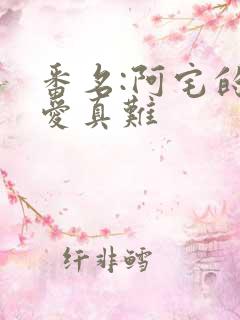 番名:阿宅的
愛真難
纤非鳕